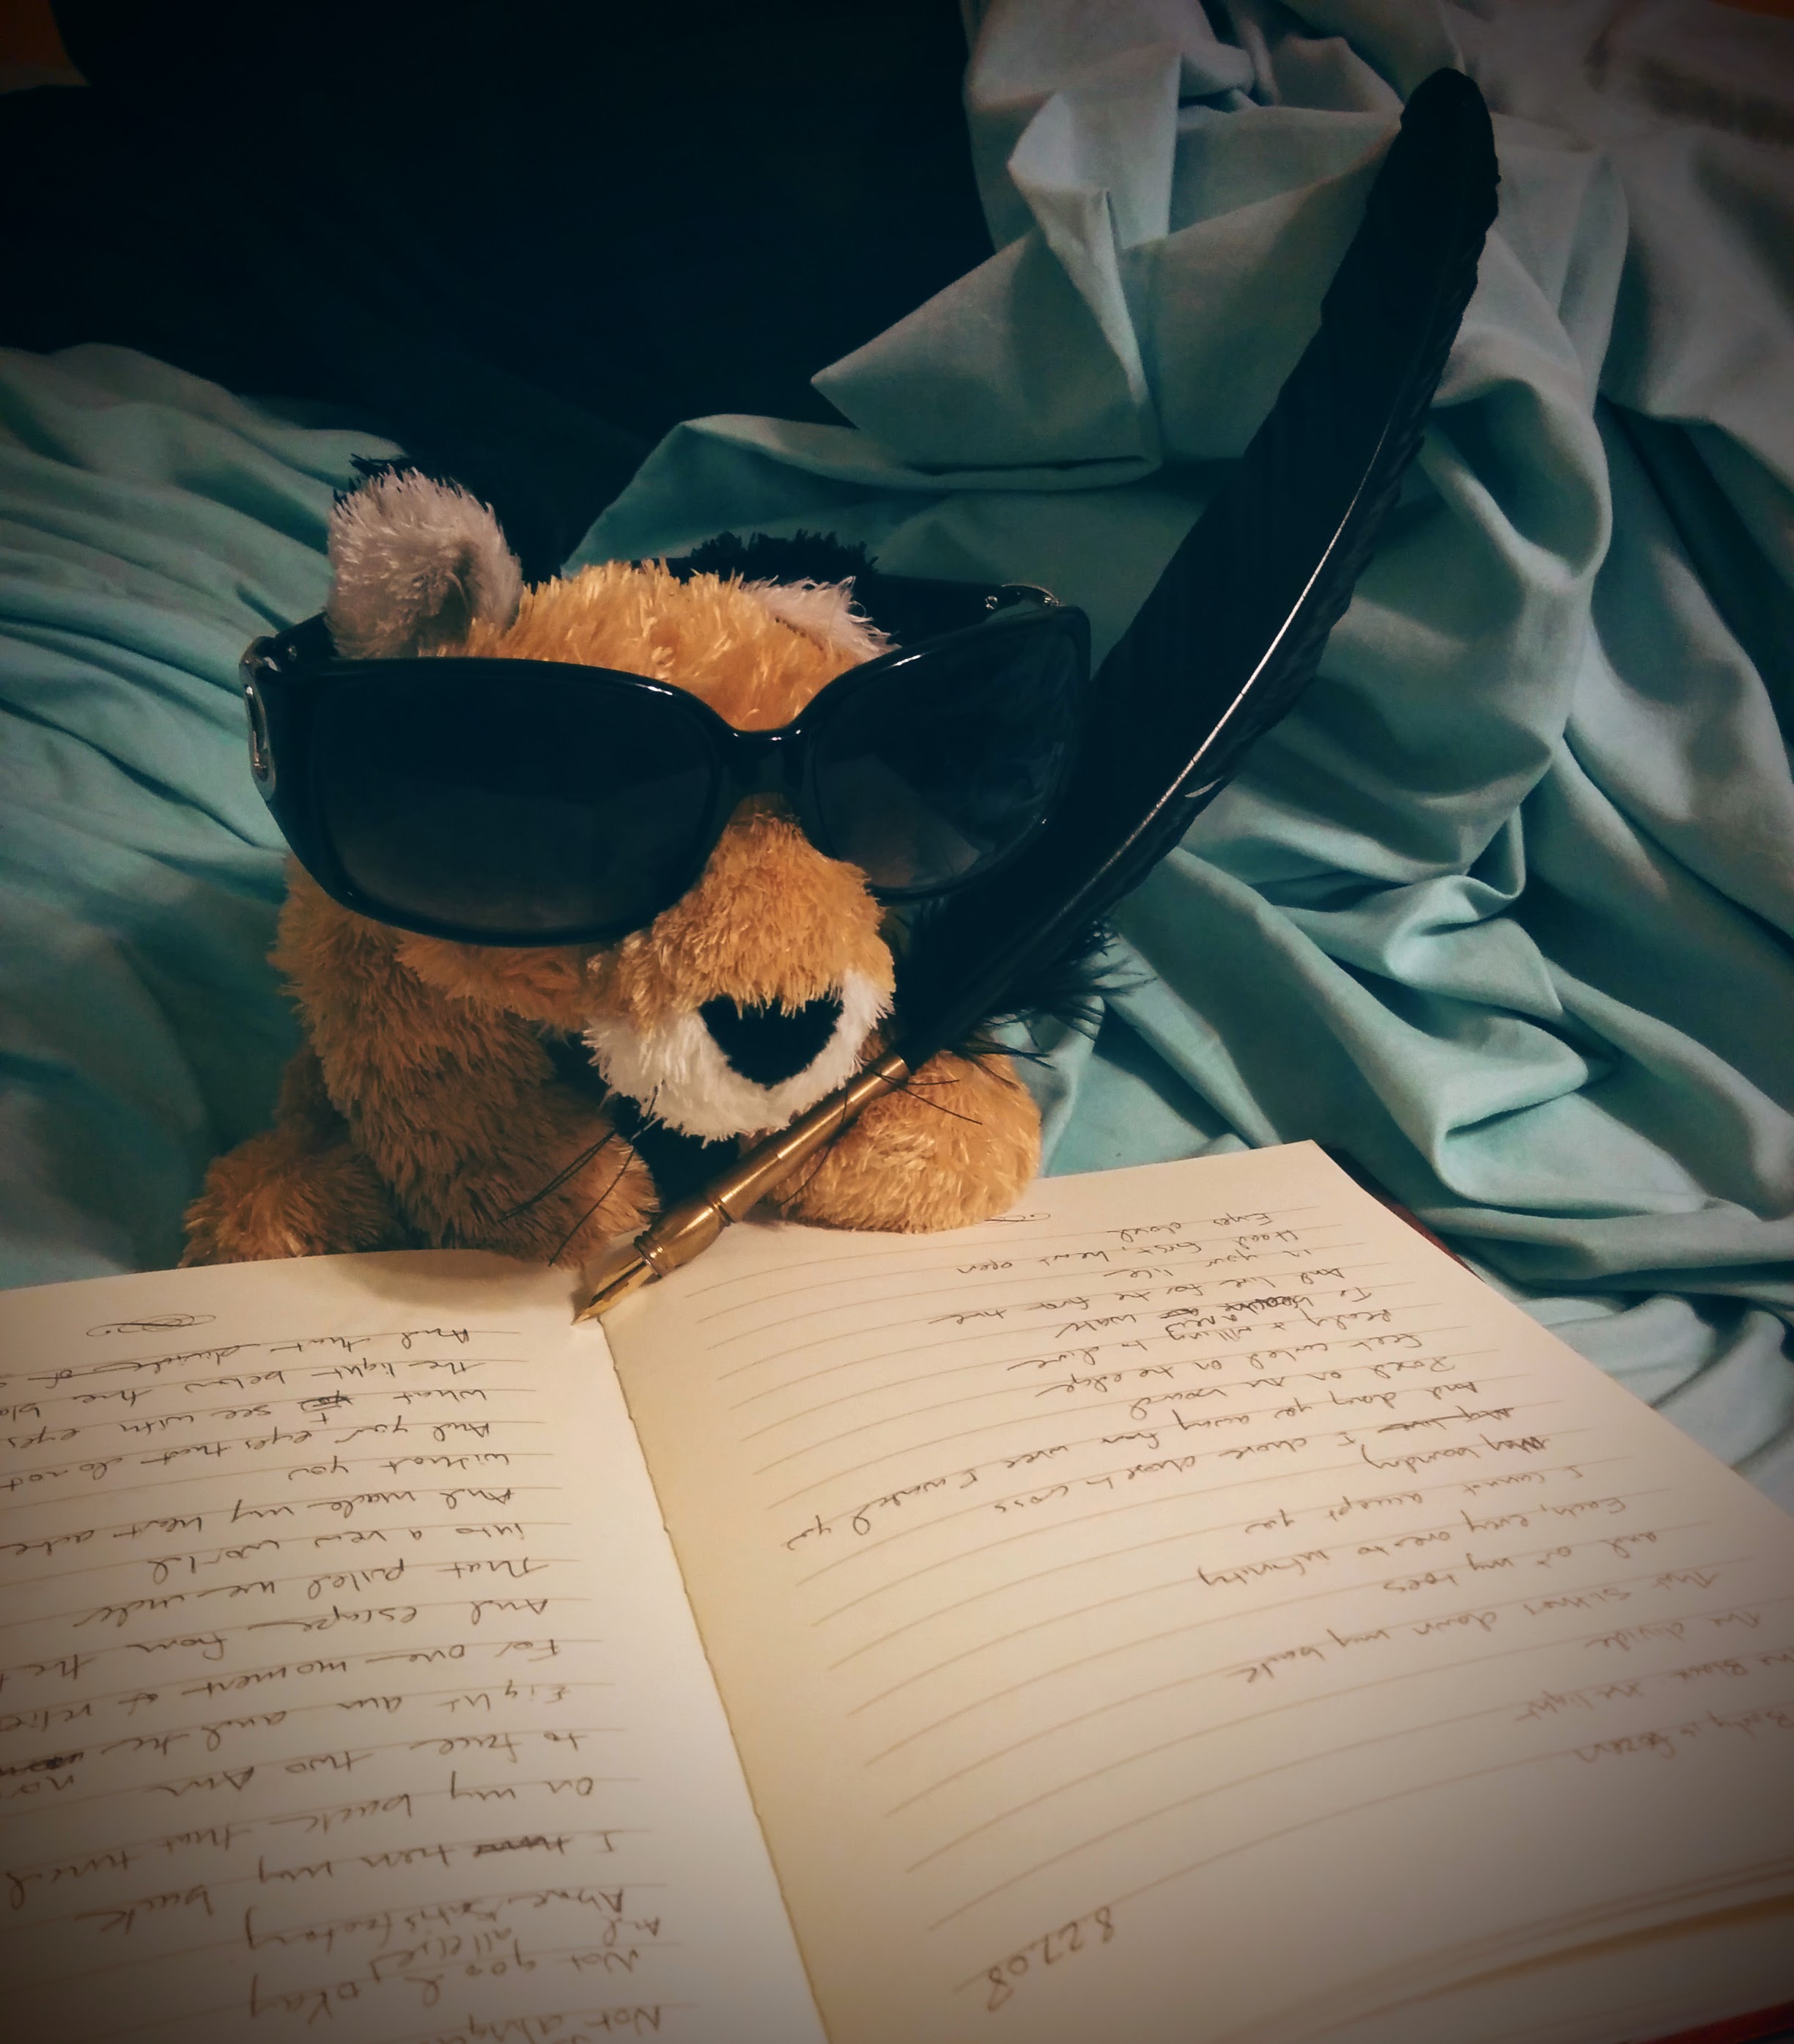 8.27.08
Body is frozen
The Black, the light
The divide
That slithers down my back
and at my toes
Each, every over to infinity
I cannot accept you
boundry
I chose chose to cross
And deny you away from were I wanted you
on the
Feet curled on the edge
Ready & willing to dive
To
And live for the first time
in your life
Head first, heart open
Eyes closed
Not
Not good, okay
all else,
And
Above satisfactory
I turn my back
On my back that turned
to face two AM
Eight am and the
For one moment of
And escape from the
That pulled me under
into a new world
And made my heart ache
without you
And your eyes that do not
What I see with eyes
the light below the
And that divides of